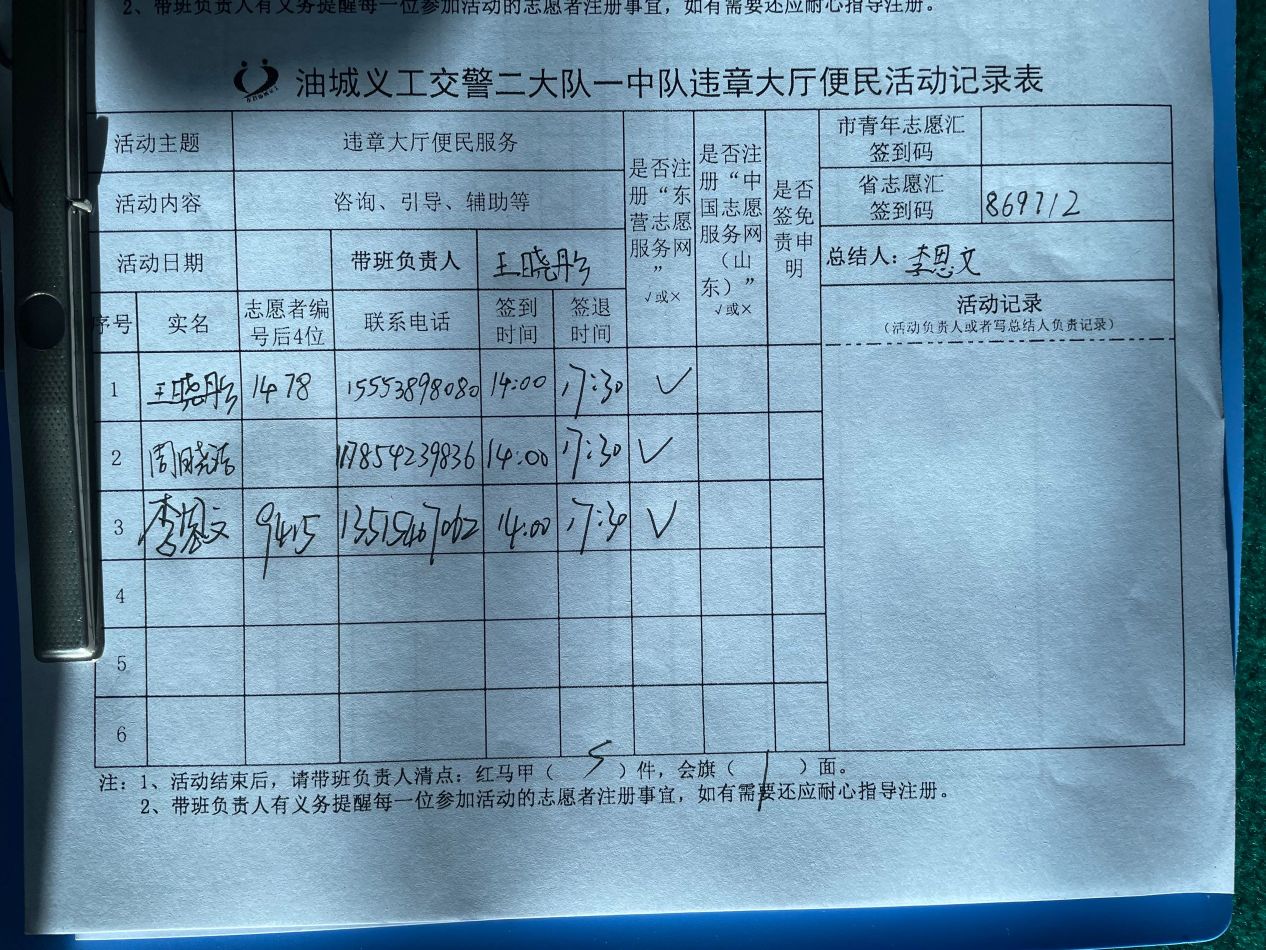 2、带班负责人有义务提醒每一位参加活动的志愿者注册事宜，如有需要还应耐心指导注册。
油城义工交警二大队一中队违章大厅便民活动记录表
活动主题 违章大厅便民服务
活动内容 咨询、引导、辅助等
活动日期 带班负责人 王晓彤
序号 实名 志愿者编号后4位 联系电话 签到时间 签退时间
是否注册“东营志愿服务网” √或×
是否注册“中国志愿服务网（山东）” √或×
是否签免责申明
市青年志愿汇签到码
省志愿汇签到码 869712
总结人：李恩文
活动记录
（活动负责人或者写总结人负责记录）
1 王晓彤 1478 15553898080 14:00 17:30 √
2 周晓浩 17854239836 14:00 17:30 √
3 李恩文 9415 13515467062 14:00 17:30 √
4
5
6
注：1、活动结束后，请带班负责人清点：红马甲（ 5 ）件，会旗（ 1 ）面。
2、带班负责人有义务提醒每一位参加活动的志愿者注册事宜，如有需要还应耐心指导注册。